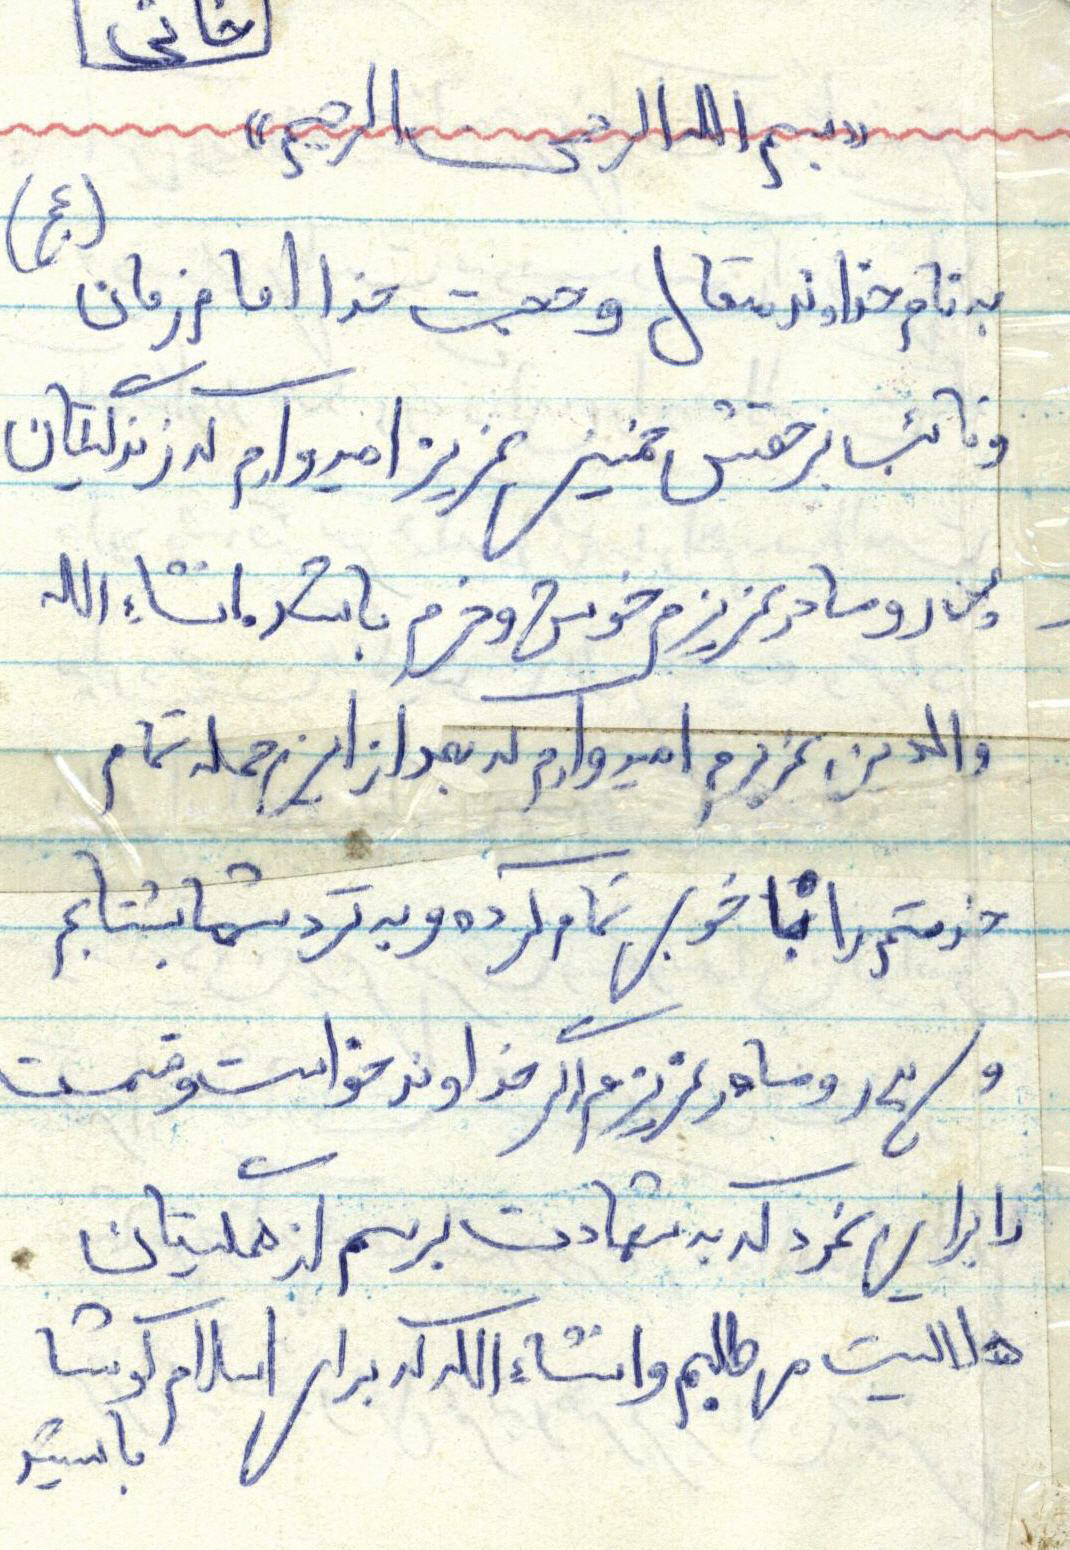 خانی
«بسم الله الرحمن الرحیم»
به نام خداوند متعال و حجت خدا امام زمان (عج)
و نائب برحقش خمینی عزیز امیدوارم که زندگیتان
پدر و مادر عزیزم خوش و خرم باشد. انشاءالله
والدین عزیزم امیدوارم که بعد از این جمله تمام
خدمتم را با خوبی تمام کرده و به نزد شما بشتابم
و پدر و مادر عزیزم اگر خداوند خواست و قسمت
را براین نمود که به شهادت برسم از همگیتان
حلالیت می طلبم و انشاءالله که برای اسلام کوشا
باشید